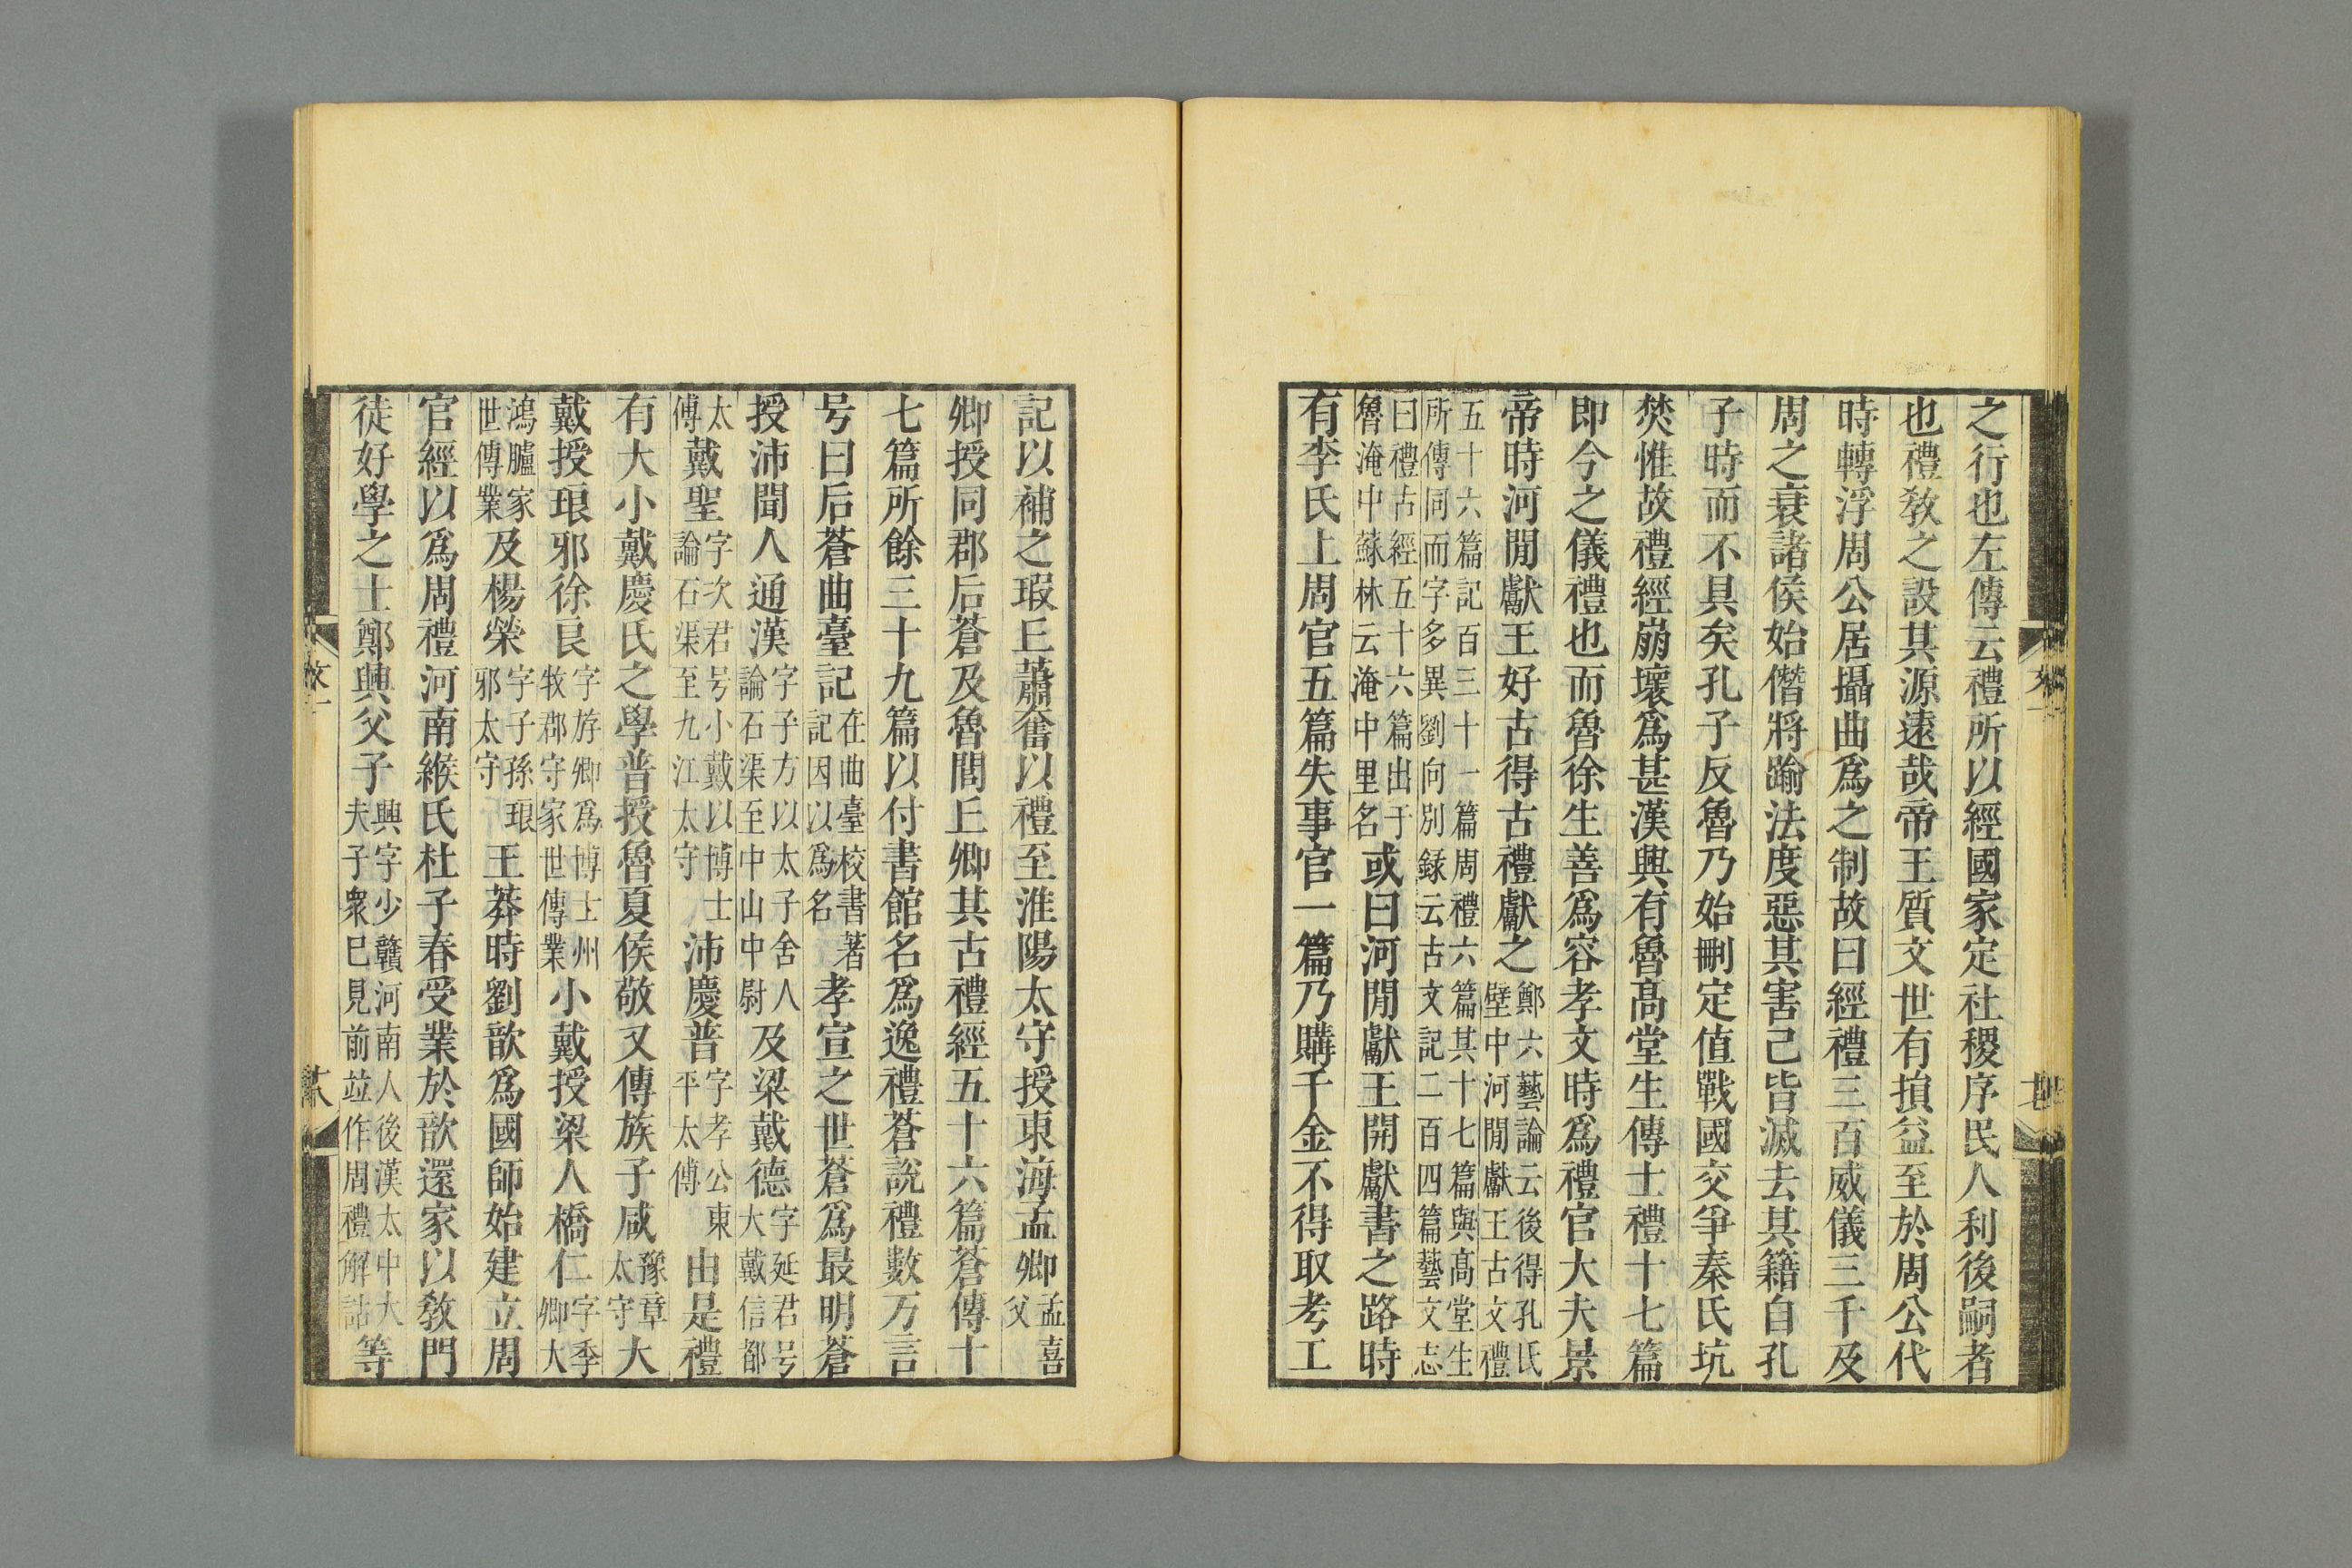 之行也左傳云禮所以經國家定社稷序民人利後嗣者
也禮敎之設其源遠哉帝王質文世有損益至於周公代
時轉浮周公居攝曲爲之制故曰經禮三百威儀三千及
周之衰諸侯始僭將踰法度惡其害己皆滅去其籍自孔
子時而不具矣孔子反魯乃始刪定值戰國交爭秦氏坑
焚惟故禮經崩壞爲甚漢興有魯髙堂生傳士禮十七篇
即今之儀禮也而魯徐生善爲容孝文時爲禮官大夫景
帝時河閒獻王好古得古禮獻之
鄭六藝論云後得孔氏
壁中河閒獻王古文禮
五十六篇記百三十一篇周禮六篇其十七篇與髙堂生
所傳同而字多異劉向別録云古文記二百四篇藝文志
曰禮古經五十六篇出于
魯淹中蘇林云淹中里名
或曰河閒獻王開獻書之路時
有李氏上周官五篇失事官一篇乃購千金不得取考工
記以補之瑕丘蕭奮以禮至淮陽太守授東海孟卿
孟喜
父
卿授同郡后蒼及魯閭丘卿其古禮經五十六篇蒼傳十
七篇所餘三十九篇以付書館名爲逸禮蒼說禮數万言
号曰后蒼曲臺記
在曲臺校書著
記因以爲名
孝宣之世蒼爲最明蒼
授沛聞人通漢
字子方以太子舍人
論石渠至中山中尉
及梁戴德
字延君号
大戴信都
太
傅
戴聖
字次君号小戴以博士
論石渠至九江太守
沛慶普
字孝公東
平太傅
由是禮
有大小戴慶氏之學普授魯夏侯敬又傳族子咸
豫章
太守
大
戴授琅邪徐良
字斿卿爲博士州
牧郡守家世傳業
小戴授梁人橋仁
字季
卿大
鴻臚家
世傳業
及楊榮
字子孫琅
邪太守
王莽時劉歆爲國師始建立周
官經以爲周禮河南緱氏杜子春受業於歆還家以敎門
徒好學之士鄭興父子
興字少贛河南人後漢太中大
夫子衆已見前竝作周禮解詁
等